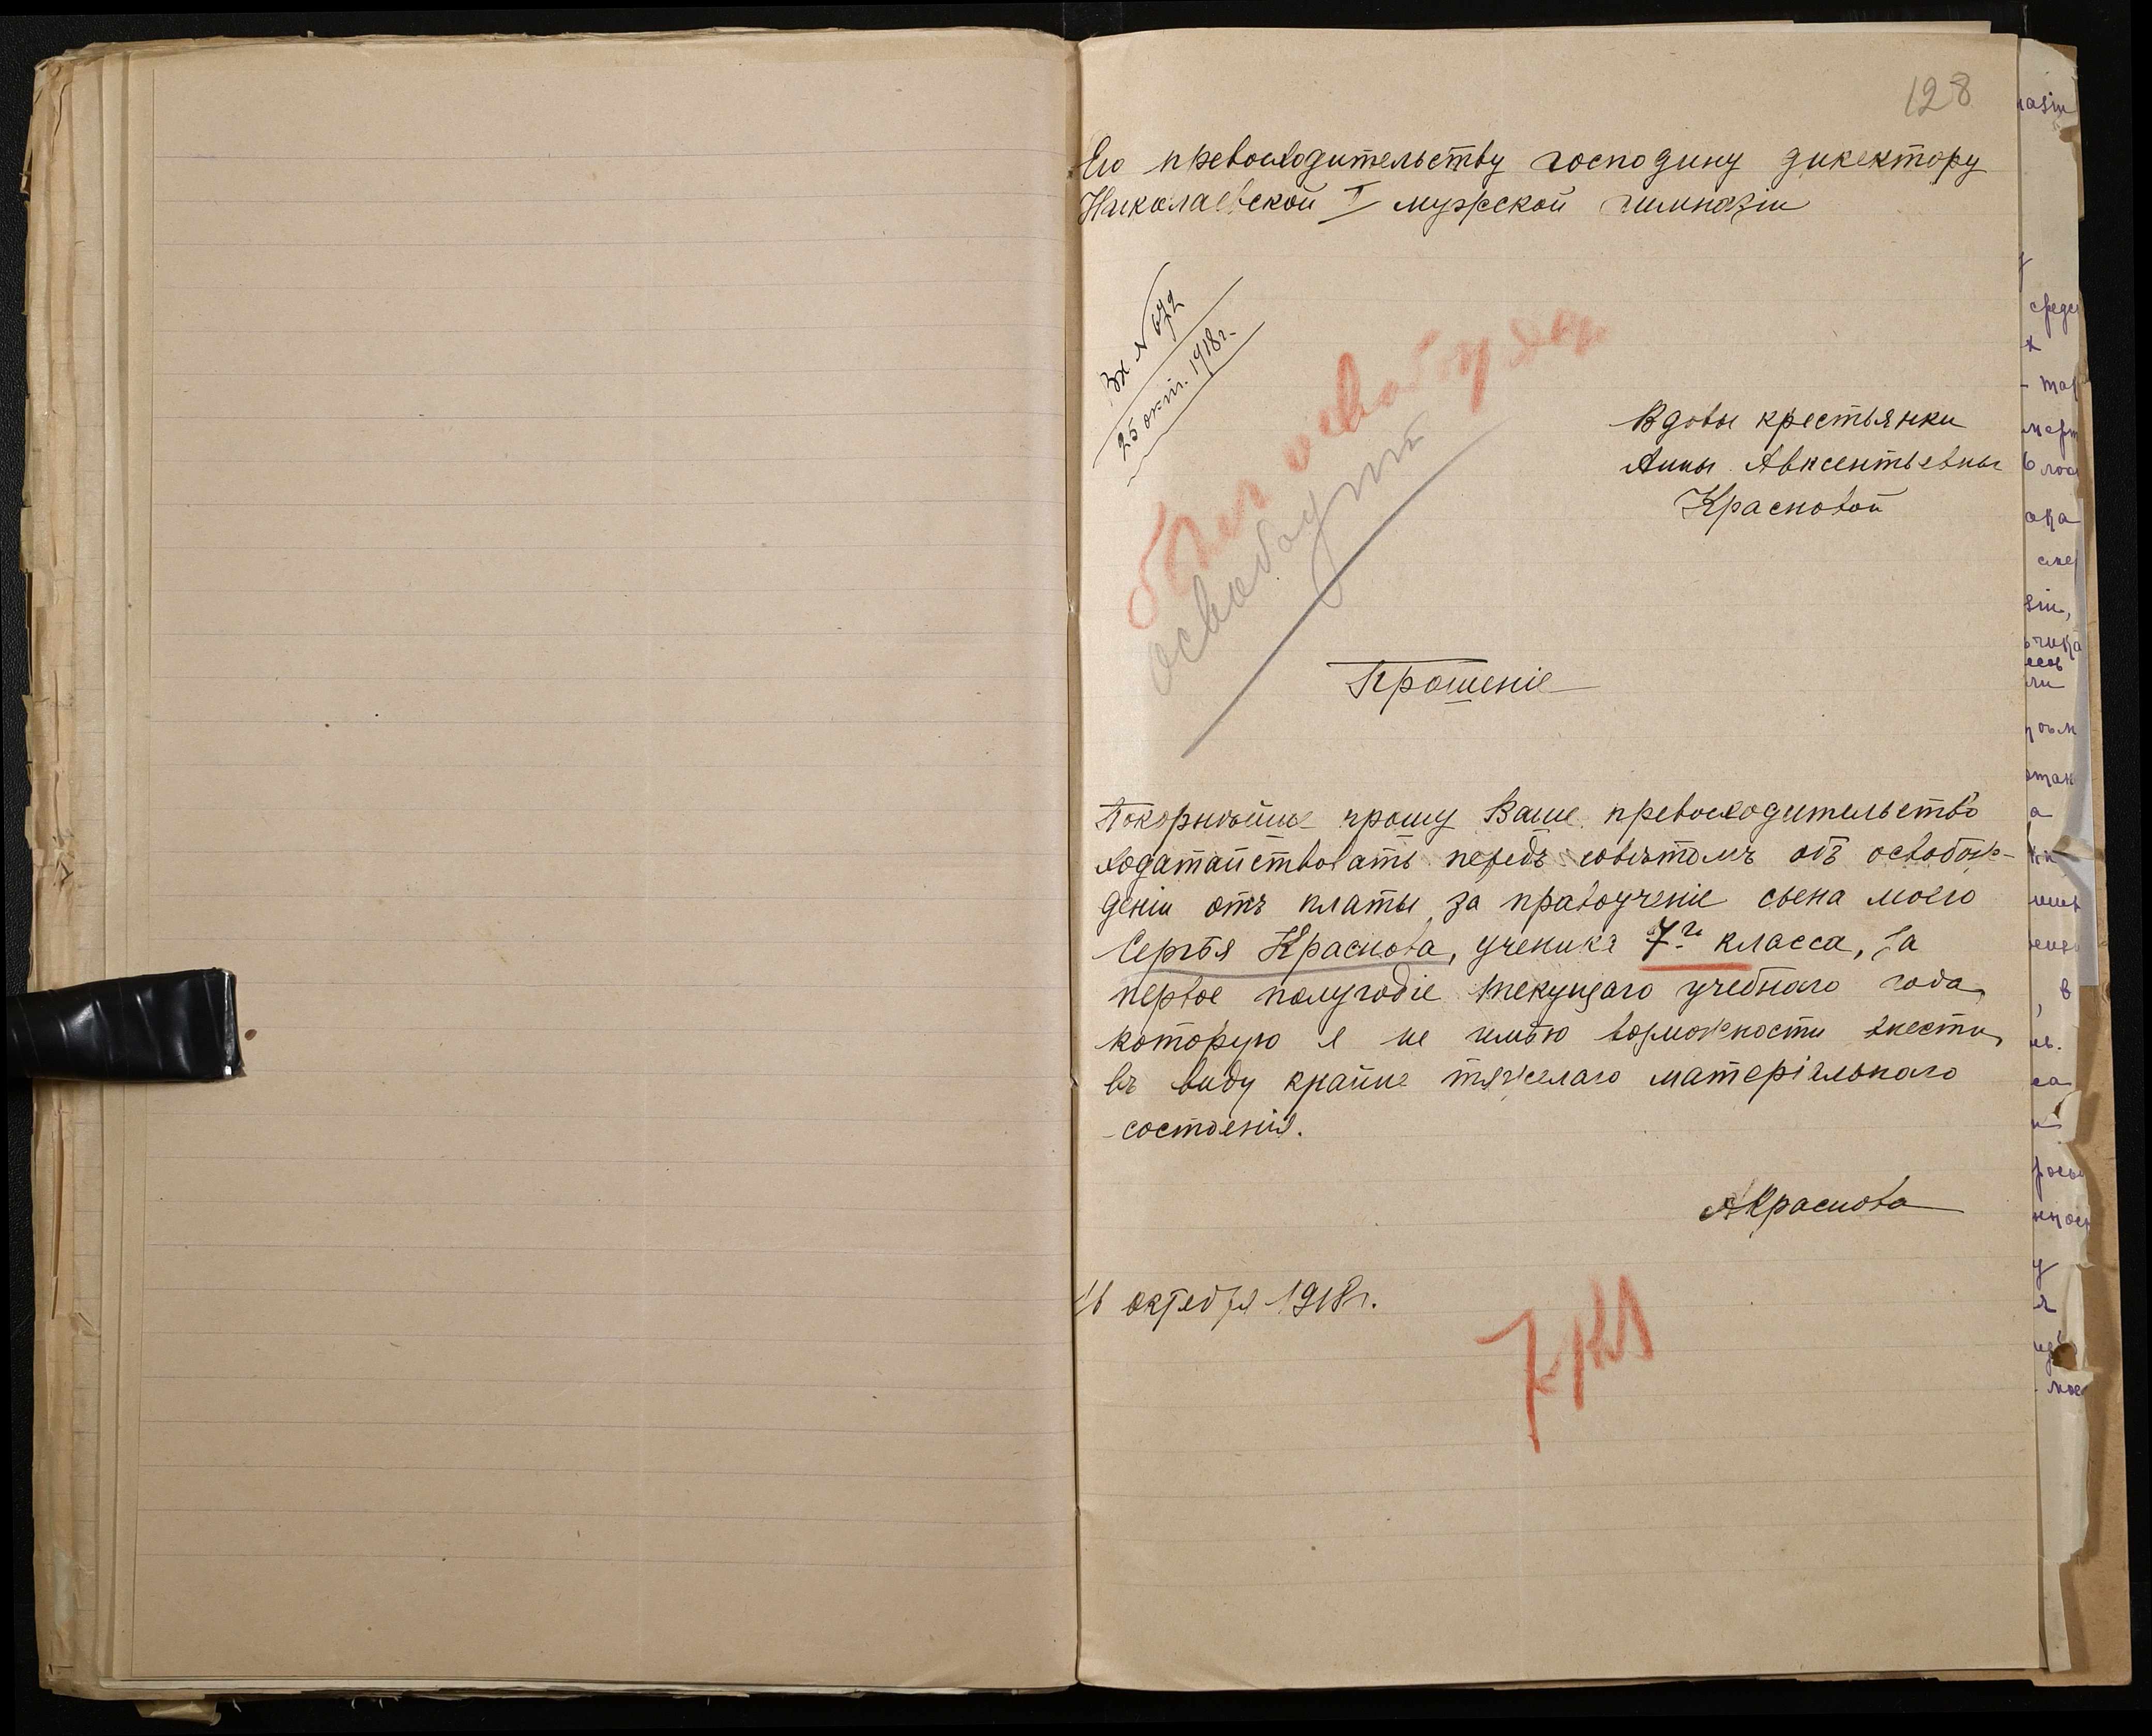 128
Его превосходительству господину директору
Николаевской I мужской гимназіи
Вх. N 672
25 окт. 1918г.
освобод
освободить
Вдовы крестьянки
Анны Авксентьевны
Красновой
Прошеніе
Покорнѣйше прошу Ваше превосходительство
ходатайствовать передъ совѣтомъ объ освобож-
деніи отъ платы за правоученіе сына моего
Сергѣя Краснова, ученика 7го класса, за
первое полугодіе текущаго учебнаго года,
которую я не имѣю возможности внести,
въ виду крайне тяжелаго матеріальнаго
состоянія.
АКраснова
16 октября 1918г.
7 кл